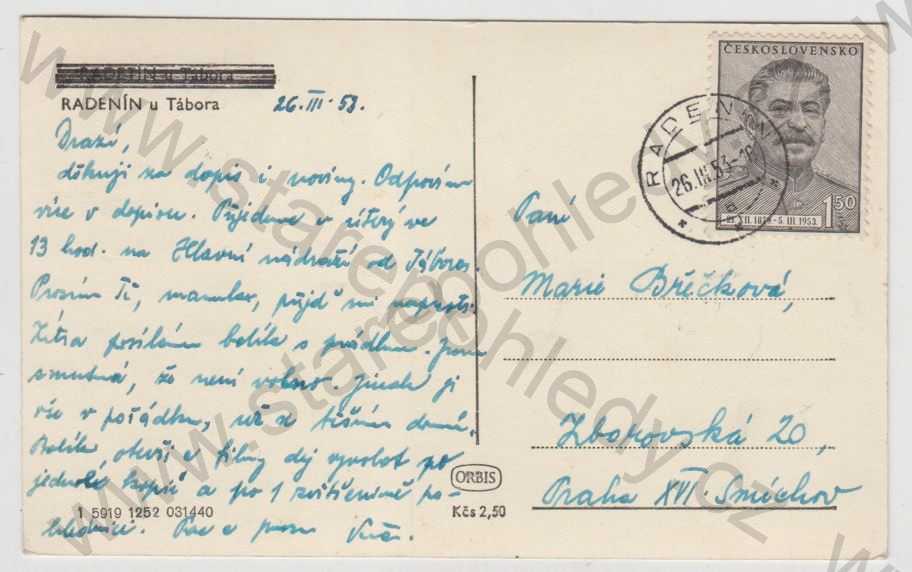 RADENÍN u Tábora
26. III. 53.
Drazí,
děkuji za dopis i noviny. Odpovím
více v dopisu. Přijedeme v úterý ve
13 hod. na Hlavní nádraží od Tábora.
Prosím Tě, maminko, přijď mi naproti.
Zítra posílám balík s prádlem. Jsem
smutná, že není volno. Jinak je
vše v pořádku, už se těším domů.
Balík otevři a filmy dej vyvolat po
jedné kopii a po 1 zvětšenině po-
hlednici. Pac a pusu
1 5919 1252 031440
ORBIS
Kčs 2,50
ČESKOSLOVENSKO
21. XII. 1879 - 5. III. 1953
1,50
Kčs
RADENÍN
26.III.53
Paní
Marie Břěčková,
Zborovská 20,
Praha XVI. Smíchov
www.starepohledy.cz
www.starepohledy.cz